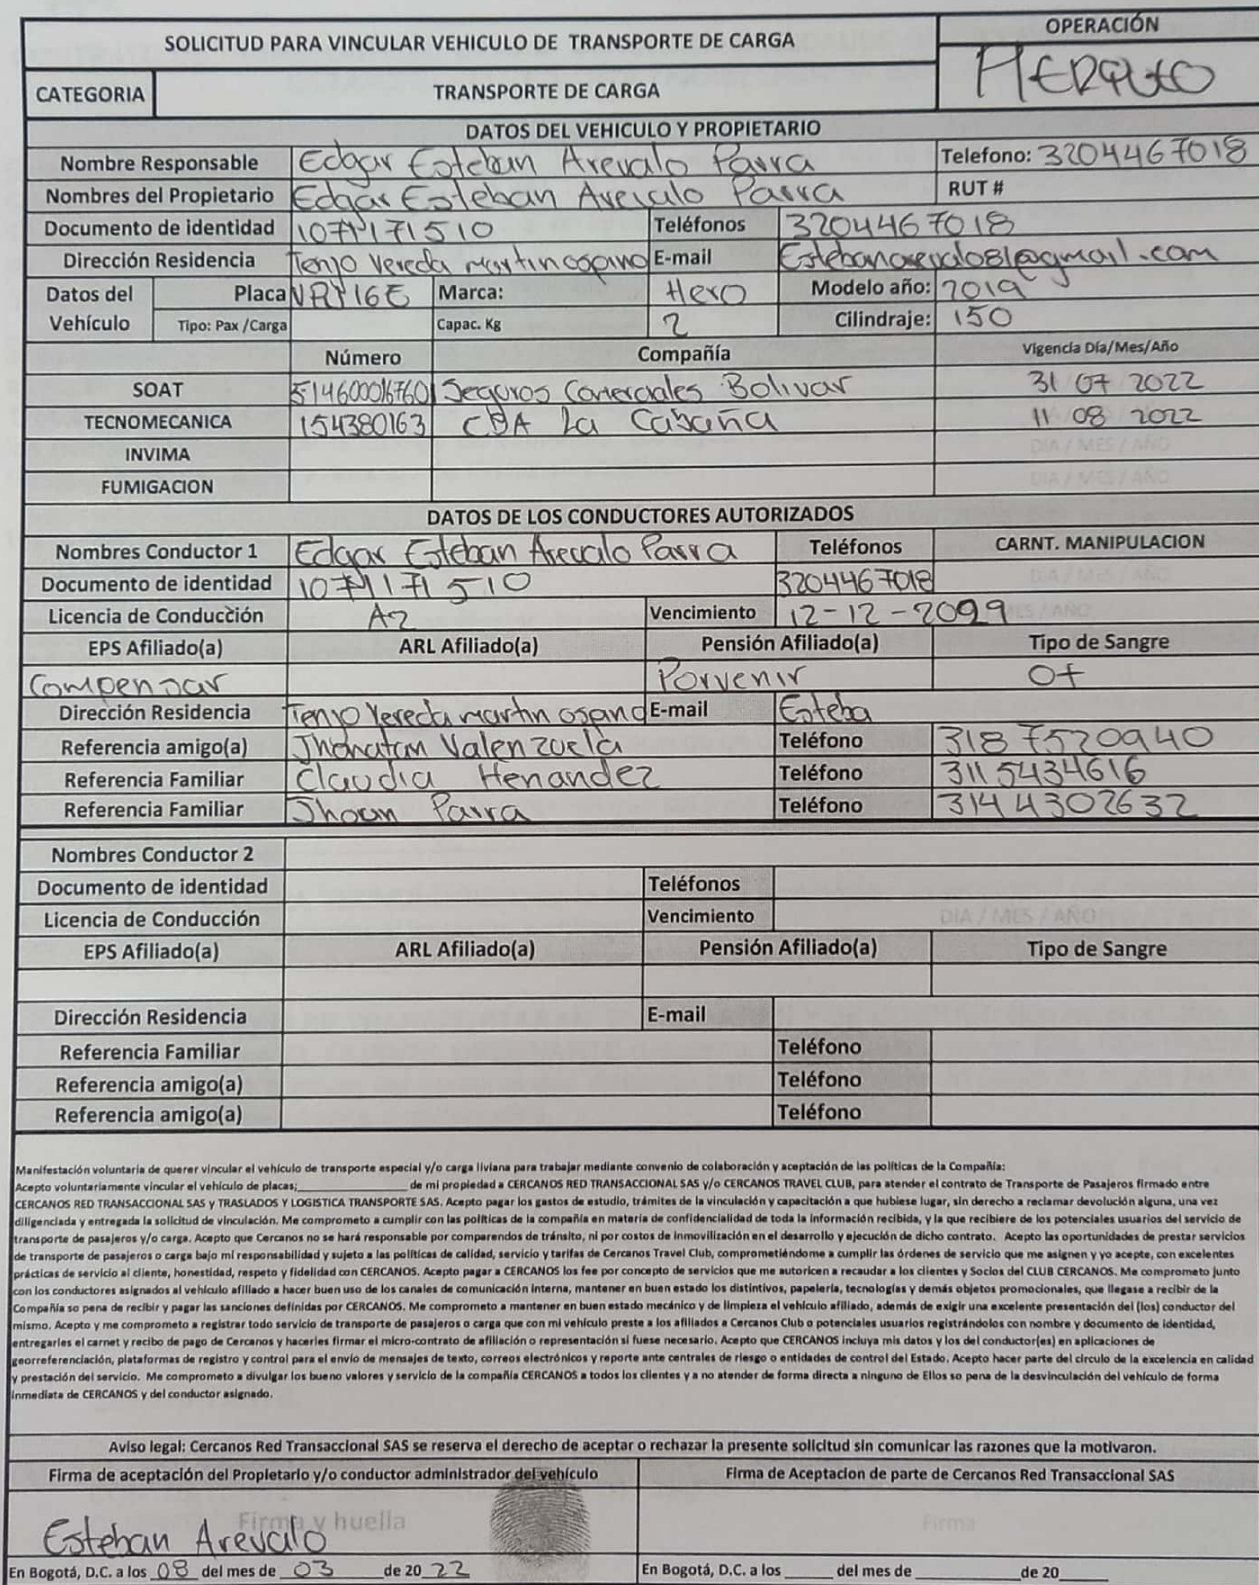 SOLICITUD PARA VINCULAR VEHICULO DE TRANSPORTE DE CARGA
OPERACIÓN
CATEGORIA TRANSPORTE DE CARGA
DATOS DEL VEHICULO Y PROPIETARIO
Nombre Responsable Edgar Esteban Arevalo Parra Telefono: 3204467018
Nombres del Propietario Edgar Esteban Arevalo Parra RUT #
Documento de identidad 1071171510 Teléfonos 3204467018
Dirección Residencia Tenjo Vereda martin ospino E-mail Estebanarevalo81@gmail.com
Datos del Vehículo Placa Marca: Hero Modelo año: 2019
Tipo: Pax /Carga Capac. Kg 2 Cilindraje: 150
Número Compañía Vigencia Día/Mes/Año
SOAT Seguros Comerciales Bolivar 31 07 2022
TECNOMECANICA 154380163 CDA La Cabaña 11 08 2022
INVIMA DIA / MES / AÑO
FUMIGACION DIA / MES / AÑO
DATOS DE LOS CONDUCTORES AUTORIZADOS
Nombres Conductor 1 Edgar Esteban Arevalo Parra Teléfonos CARNT. MANIPULACION
Documento de identidad 1071171510 3204467018 DIA / MES / AÑO
Licencia de Conducción A2 Vencimiento 12-12-2099 MES / AÑO
EPS Afiliado(a) ARL Afiliado(a) Pensión Afiliado(a) Tipo de Sangre
Compensar Porvenir O+
Dirección Residencia Tenjo Vereda martin ospino E-mail Esteba
Referencia amigo(a) Jhonatan Valenzuela Teléfono 3187520940
Referencia Familiar Claudia Henandez Teléfono 3115434616
Referencia Familiar Jhoan Parra Teléfono 3144302632
Nombres Conductor 2
Documento de identidad Teléfonos
Licencia de Conducción Vencimiento DIA / MES / AÑO
EPS Afiliado(a) ARL Afiliado(a) Pensión Afiliado(a) Tipo de Sangre
Dirección Residencia E-mail
Referencia Familiar Teléfono
Referencia amigo(a) Teléfono
Referencia amigo(a) Teléfono
Manifestación voluntaria de querer vincular el vehículo de transporte especial y/o carga liviana para trabajar mediante convenio de colaboración y aceptación de las políticas de la Compañía:
Acepto voluntariamente vincular el vehículo de placas;____________ de mi propiedad a CERCANOS RED TRANSACCIONAL SAS y/o CERCANOS TRAVEL CLUB, para atender el contrato de Transporte de Pasajeros firmado entre
CERCANOS RED TRANSACCIONAL SAS y TRASLADOS Y LOGISTICA TRANSPORTE SAS. Acepto pagar los gastos de estudio, trámites de la vinculación y capacitación a que hubiese lugar, sin derecho a reclamar devolución alguna, una vez
diligenciada y entregada la solicitud de vinculación. Me comprometo a cumplir con las políticas de la compañía en materia de confidencialidad de toda la información recibida, y la que recibiere de los potenciales usuarios del servicio de
transporte de pasajeros y/o carga. Acepto que Cercanos no se hará responsable por comparendos de tránsito, ni por costos de inmovilización en el desarrollo y ejecución de dicho contrato. Acepto las oportunidades de prestar servicios
de transporte de pasajeros o carga bajo mi responsabilidad y sujeto a las políticas de calidad, servicio y tarifas de Cercanos Travel Club, comprometiéndome a cumplir las órdenes de servicio que me asignen y yo acepte, con excelentes
prácticas de servicio al cliente, honestidad, respeto y fidelidad con CERCANOS. Acepto pagar a CERCANOS los fee por concepto de servicios que me autoricen a recaudar a los clientes y Socios del CLUB CERCANOS. Me comprometo junto
con los conductores asignados al vehículo afiliado a hacer buen uso de los canales de comunicación interna, mantener en buen estado los distintivos, papelería, tecnologías y demás objetos promocionales, que llegase a recibir de la
Compañía so pena de recibir y pagar las sanciones definidas por CERCANOS. Me comprometo a mantener en buen estado mecánico y de limpieza el vehículo afiliado, además de exigir una excelente presentación del (los) conductor del
mismo. Acepto y me comprometo a registrar todo servicio de transporte de pasajeros o carga que con mi vehículo preste a los afiliados a Cercanos Club o potenciales usuarios registrándolos con nombre y documento de identidad,
entregarles el carnet y recibo de pago de Cercanos y hacerles firmar el micro-contrato de afiliación o representación si fuese necesario. Acepto que CERCANOS incluya mis datos y los del conductor(es) en aplicaciones de
georreferenciación, plataformas de registro y control para el envío de mensajes de texto, correos electrónicos y reporte ante centrales de riesgo o entidades de control del Estado. Acepto hacer parte del circulo de la excelencia en calidad
y prestación del servicio. Me comprometo a divulgar los bueno valores y servicio de la compañía CERCANOS a todos los clientes y a no atender de forma directa a ninguno de Ellos so pena de la desvinculación del vehículo de forma
inmediata de CERCANOS y del conductor asignado.
Aviso legal: Cercanos Red Transaccional SAS se reserva el derecho de aceptar o rechazar la presente solicitud sin comunicar las razones que la motivaron.
Firma de aceptación del Propietario y/o conductor administrador del vehículo Firma de Aceptacion de parte de Cercanos Red Transaccional SAS
Firma y huella Firma
Esteban Arevalo
En Bogotá, D.C. a los 08 del mes de 03 de 20 22 En Bogotá, D.C. a los _____ del mes de __________ de 20____